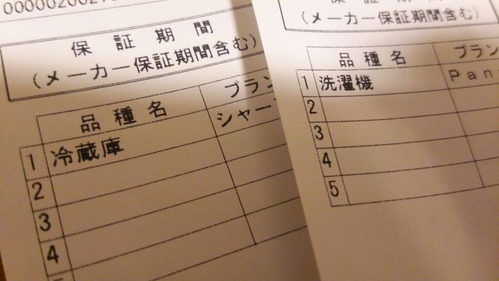 保証期間
(メーカー保証期間含む)
品種名 ブラン
1 冷蔵庫 シャー
2
3
4
5
保証期間
(メーカー保証期間含む)
品種名 ブラン
1 洗濯機 Pan
2
3
4
5